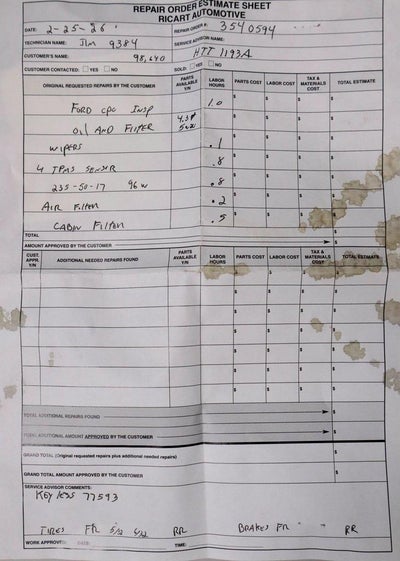 REPAIR ORDER ESTIMATE SHEET
RICART AUTOMOTIVE
DATE: 2-25-26 REPAIR ORDER #: 3540594
TECHNICIAN NAME: Jim 9384 SERVICE ADVISOR NAME:
CUSTOMER'S NAME: 98,640 HTT 1193A
CUSTOMER CONTACTED: YES NO SOLD: YES NO
ORIGINAL REQUESTED REPAIRS BY THE CUSTOMER PARTS AVAILABLE Y/N LABOR HOURS PARTS COST LABOR COST TAX & MATERIALS COST TOTAL ESTIMATE
FORD CPO INSP 1.0 $ $ $ $
OIL AND FILTER $ $ $ $
WIPERS .1 $ $ $ $
4 TPMS SENSOR .8 $ $ $ $
235-50-17 96W .8 $ $ $ $
AIR FILTER .2 $ $ $ $
CABIN FILTER .5 $ $ $ $
TOTAL $
AMOUNT APPROVED BY THE CUSTOMER $
CUST. APPR. Y/N ADDITIONAL NEEDED REPAIRS FOUND PARTS AVAILABLE Y/N LABOR HOURS PARTS COST LABOR COST TAX & MATERIALS COST TOTAL ESTIMATE
$ $ $ $
$ $ $ $
$ $ $ $
$ $ $ $
$ $ $ $
$ $ $ $
TOTAL ADDITIONAL REPAIRS FOUND $
TOTAL ADDITIONAL AMOUNT APPROVED BY THE CUSTOMER $
GRAND TOTAL (Original requested repairs plus additional needed repairs) $
GRAND TOTAL AMOUNT APPROVED BY THE CUSTOMER $
SERVICE ADVISOR COMMENTS:
KEY LESS 77593
TIRES FR 5/32 6/32 RR BRAKES FR RR
WORK APPROVED DATE: TIME: